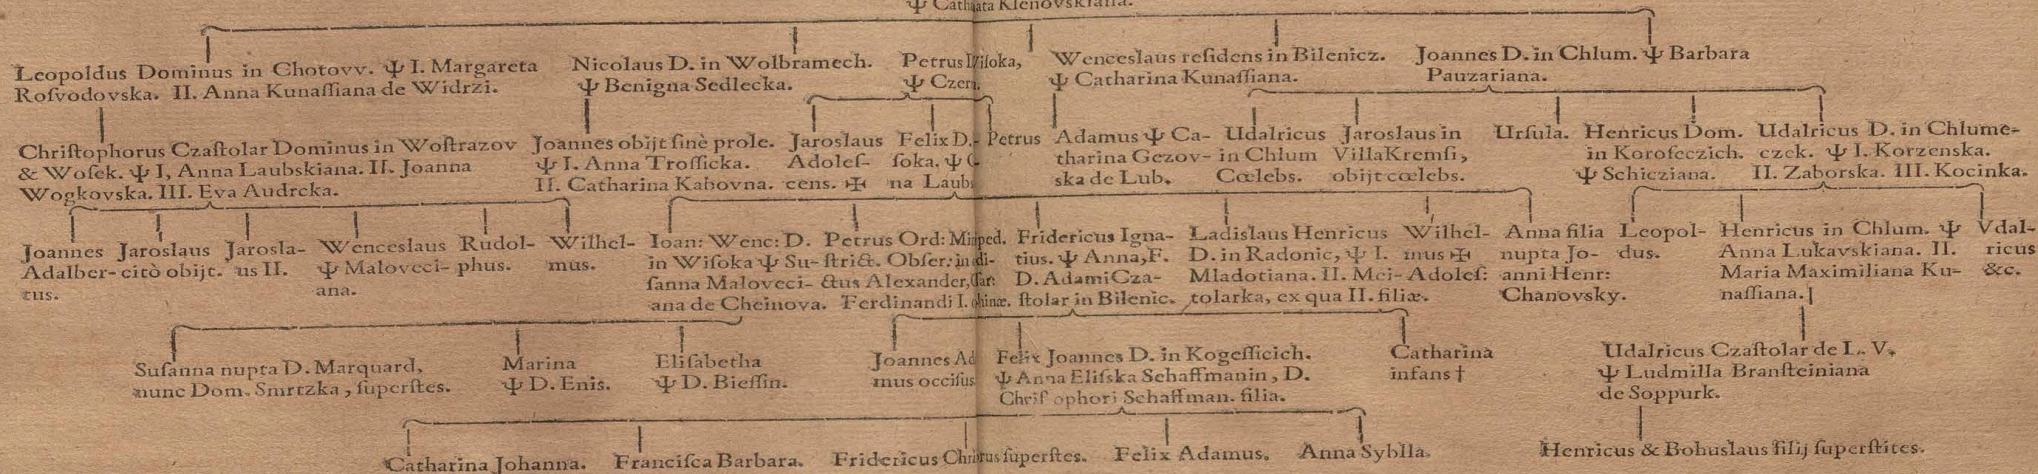 Ψ Catharata Klenovskiana.
Leopoldus Dominus in Chotovv. Ψ I. Margareta
Rosvodovska. II. Anna Kunaſſiana de Widrzi.
Nicolaus D. in Wolbramech.
Ψ Benigna Sedlecka.
Petrus Wiſoka,
Ψ Czern.
Wenceslaus reſidens in Bilenicz.
Ψ Catharina Kunaſſiana.
Joannes D. in Chlum. Ψ Barbara
Pauzariana.
Chriſtophorus Czaſtolar Dominus in Woſtrazov
& Woſek. Ψ I, Anna Laubskiana. II. Joanna
Wogkovska. III. Eva Audrcka.
Joannes obijt ſinè prole.
Ψ I. Anna Troſſicka.
II. Catharina Kabovna.
Jaroslaus
Adoleſ-
cens. ✠
Felix D.
ſoka. Ψ
na Laubs
Petrus
Adamus Ψ Ca-
tharina Gezov-
ska de Lub.
Udalricus
in Chlum
Cœlebs.
Jaroslaus in
Villa Kremſi,
obijt cœlebs.
Urſula.
Henricus Dom.
in Koroſeczich.
Ψ Schicziana.
Udalricus D. in Chlume-
czek. Ψ I. Korzenska.
II. Zaborska. III. Kocinka.
Joannes
Adalber-
tus.
Jaroslaus
citò obijt.
Jarosla-
us II.
Wenceslaus
Ψ Maloveci-
ana.
Rudol-
phus.
Wilhel-
mus.
Ioan: Wenc: D.
in Wiſoka Ψ Su-
ſanna Maloveci-
ana de Cheinova.
Petrus Ord: Min ped.
ſtrict. Obſer: in di-
ctus Alexander,
Ferdinandi I.
Fridericus Igna-
tius. Ψ Anna, F.
D. Adami Cza-
ſtolar in Bilenic.
Ladislaus Henricus
D. in Radonic, Ψ I.
Mladotiana. II. Mci-
tolarka, ex qua II. filiæ.
Wilhel-
mus ✠
Adoleſ:
Anna filia
nupta Jo-
anni Henr:
Chanovsky.
Leopol-
dus.
Henricus in Chlum. Ψ
Anna Lukavskiana. II.
Maria Maximiliana Ku-
naſſiana.
Vdal-
ricus
&c.
Suſanna nupta D. Marquard,
nunc Dom. Smrtzka, ſuperſtes.
Marina
Ψ D. Enis.
Eliſabetha
Ψ D. Bieſſin.
Joannes Ad
mus occiſus
Felix Joannes D. in Kogeſſicich.
Ψ Anna Eliſska Schaffmanin, D.
Chriſtophori Schaffman. filia.
Catharina
infans †
Udalricus Czaſtolar de L. V.
Ψ Ludmilla Branſteiniana
de Soppurk.
Catharina Johanna.
Franciſca Barbara.
Fridericus ſuperſtes.
Felix Adamus.
Anna Syblla.
Henricus & Bohuslaus filij ſuperſtites.